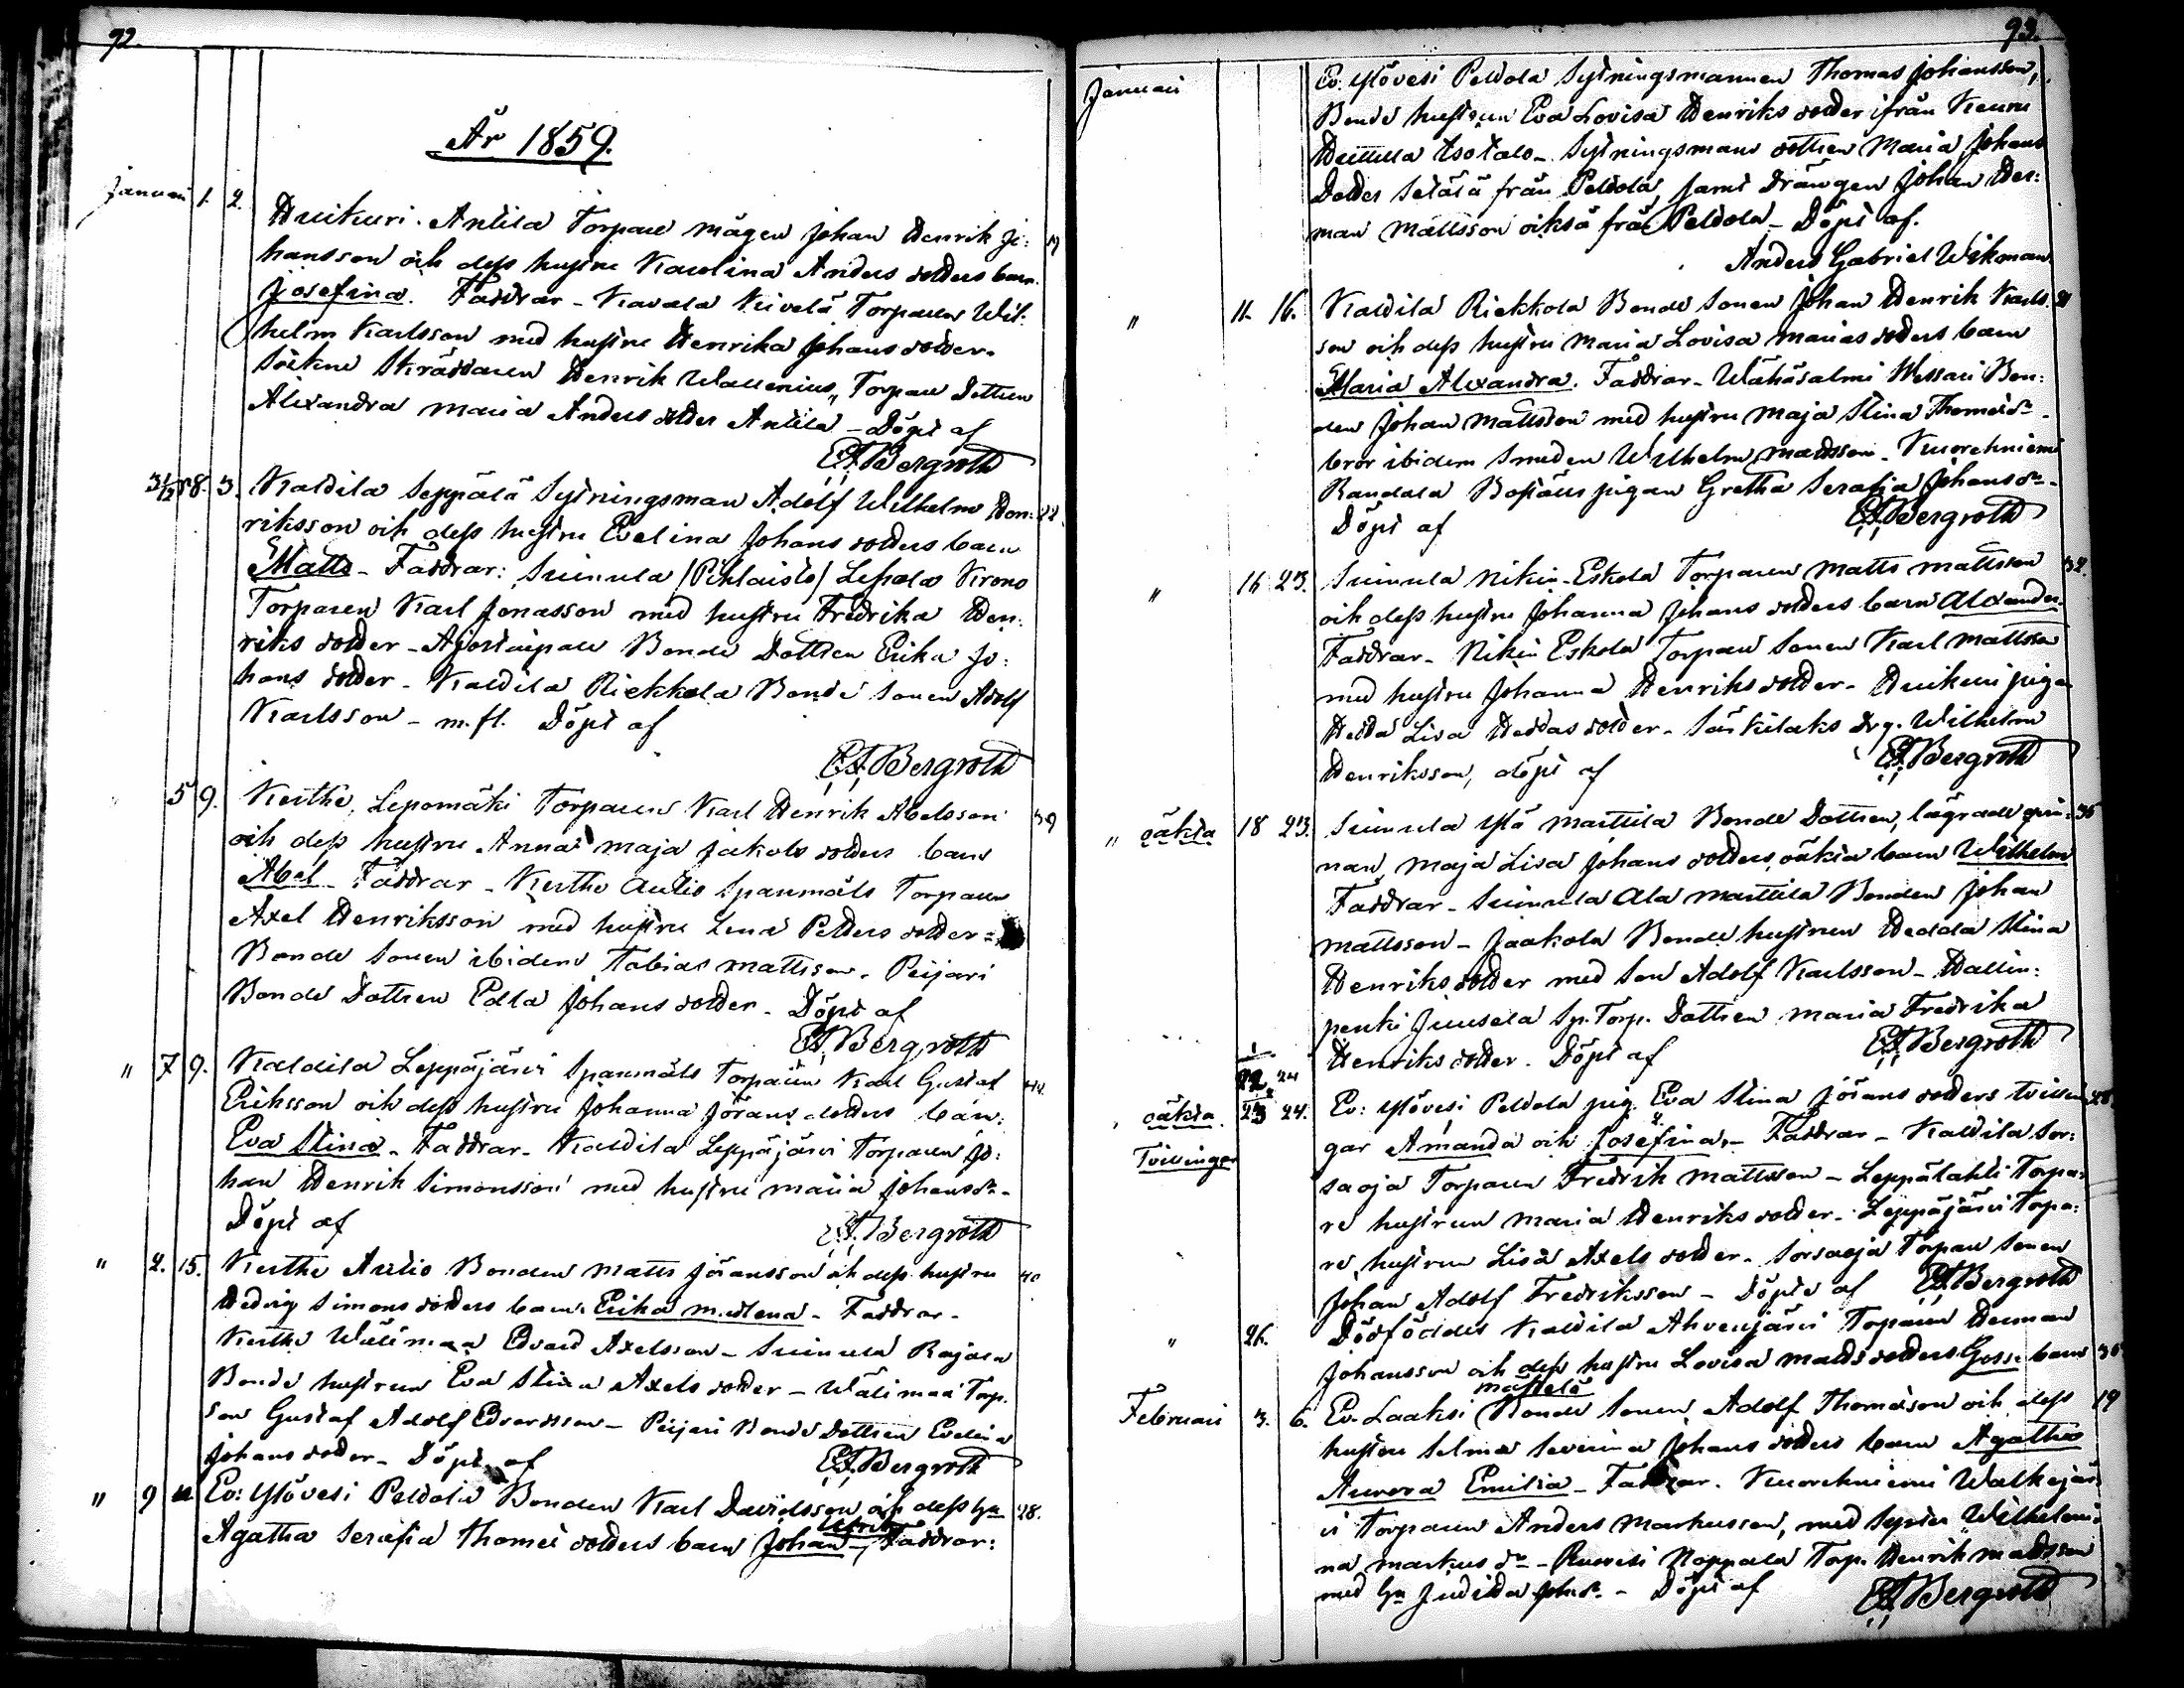 92.
År 1859.
Januari 1. 2. Huikuri Anttila Torpare mågen Johan Henrik Jo:
hansson och dess hustru Karolina Anders dotters barn
Josefina. Faddrar - Kavala Kivelä Torparen Wil:
helm Karlsson med hustru Henrika Johans dotter.
Sockne Skräddaren Henrik Wallenius, Torpare Dottren
Alexandra Maria Anders dotter Anttila - Döpt af
Bergroth
31/12 58. 3. Kaldila Seppälä Sytningsman Adolf Wilhelm Hen: 22.
riksson och dess hustru Evelina Johans dotters barn
Matts - Faddrar: Suinula (Pihlaisto) Lepola Krono
Torparen Karl Jonasson med hustru Fredrika Hen:
riks dotter - Bonde Dottren Erika Jo:
hans dotter - Kaldila Riekkola Bonde Sonen Adolf
Karlsson - m.fl. Döpt af
Bergroth
5 9. Kerthe, Lepomäki Torparen Karl Henrik Abelsson 39
och dess hustru Anna Maja Jakobs dotters barn
Abel - Faddrar - Kerthe Aulio Spanmåls Torparen
Axel Henriksson med hustru Lena Petters dotter =
Bonde Sonen ibidem Tobias Mattsson. Peijari
Bonde Dottren Edla Johans dotter - Döpt af
Bergroth
" 7 9. Kaldila Leppäjärvi Spanmåls Torparen Karl Gustaf 44.
Eriksson och dess hustru Johanna Jörans dotters barn:
Eva Stina - Faddrar - Kaldila Leppäjärvi Torparen Jo:
han Henrik Simonsson med hustru Maria Johansdr -
Döpt af
Bergroth
" 2. 15. Kerthe Aulio Bonden Matts Jöransson och dess hustru 40
Hedvig Simons dotters barn Erika Madlena - Faddrar -
Kerthe Wälimaa Edvard Axelsson - Suinula Rajala
Bonde hustrun Eva Stina Axels dotter - Wälimaa Torp.
Son Gustaf Adolf Edvardsson - Peijari Bonde Dottren Evelina
Johans dotter - Döpt af Bergroth
" 9 Ev: Ylövesi Peldola Bonden Karl Davidsson och dess hu 28.
Agatha Serafia Thomas dotters barn Johan Ulrik - Faddrar:
93.
Januari Ev: Ylövesi Peldola Sytningsmannen Thomas Johansson,
Bonde hustrun Eva Lovisa Henriks dotter ifrån Keuru
Huttula Isotalo - Sytningsmans dottren Maria Johans
Dotter Setälä från Peldola samt Drängen Johan Her:
man Mattsson också från Peldola - Döpt af.
Anders Gabriel Wikman.
" 11. 16. Kaldila Riekkola Bonde Sonen Johan Henrik Karls:
son och dess hustru Maria Lovisa Marias dotters barn
Maria Alexandra. Faddrar - Wähäsalmi Messari Bon:
den Johan Mattsson med hustru Maja Stina Thomasdr -
bror ibidem Smeden Wilhelm Mattsson. Kuorehniemi
Randala Boställs pigan Gretha Serafia Johansdr -
Döpt af Bergroth
" 16 23. Suinula Nikin Eskola Torparen Matts Mattsson 32.
och dess hustru Johanna Johans dotters barn Alexander.
Faddrar - Nikin Eskola Torpare Sonen Karl Mattsson
med hustru Johanna Henriks dotter - Huikuri pigan
Hedda Lisa Heddas dotter - Särkilaks drg. Wilhelm
Henriksson, döpt af Bergroth
" oäkta 18 23. Suinula Ylä Marttila Bonde Dottren, lägrade qvin: 36
nan, Maja Lisa Johans dotters, oäkta barn Wilhelm
Faddrar - Suinula Ala Marttila Bonden Johan
Mattsson - Jaakola Bonde hustrun Hedda Stina
Henriks dotter med Son Adolf Karlsson - Hallin:
penki Juusela Sp. Torp. Dottren Maria Fredrika
Henriks dotter. Döpt af Bergroth
1 22 24
oäkta 2 23 24. Ev: Ylövesi Peldola pig. Eva Stina Jörans dotters tvillin: 28.
Tvillingar gar Amanda och Josefina. - Faddrar - Kaldila Sor:
saoja Torparen Fredrik Mattsson - Leppälahti Torpa:
re hustrun Maria Henriks dotter - Leppäjärvi Torpa:
re hustrun Lisa Axels dotter - Sorsaoja Torpare Sonen
Johan Adolf Fredriksson - Döpte af Bergroth
" 26. Dödföddes Kaldila Ahvenjärvi Torparen Herman
Johansson och dess hustru Lovisa Matts dotters Gosse barn 30
Februari 3. 6. Ev. Laaksi Mattelä Bonde Sonen Adolf Thomasson och dess 19
hustru Selma Severina Johans dotters barn Agatha
Aurora Emilia - Faddrar. Kuorehniemi Walkejär:
vi Torparen Anders Markusson, med Syster Wilhelmi:
na Markus dr - Ruovesi Noppala Torp. Henrik Mattsson
med hu Juditha Johsdr - Döpt af Bergroth